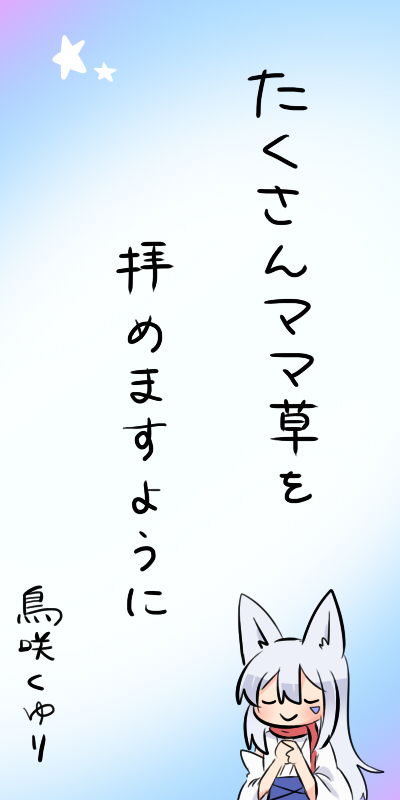 たくさんママ草を
拝めますように
鳥咲くゆり